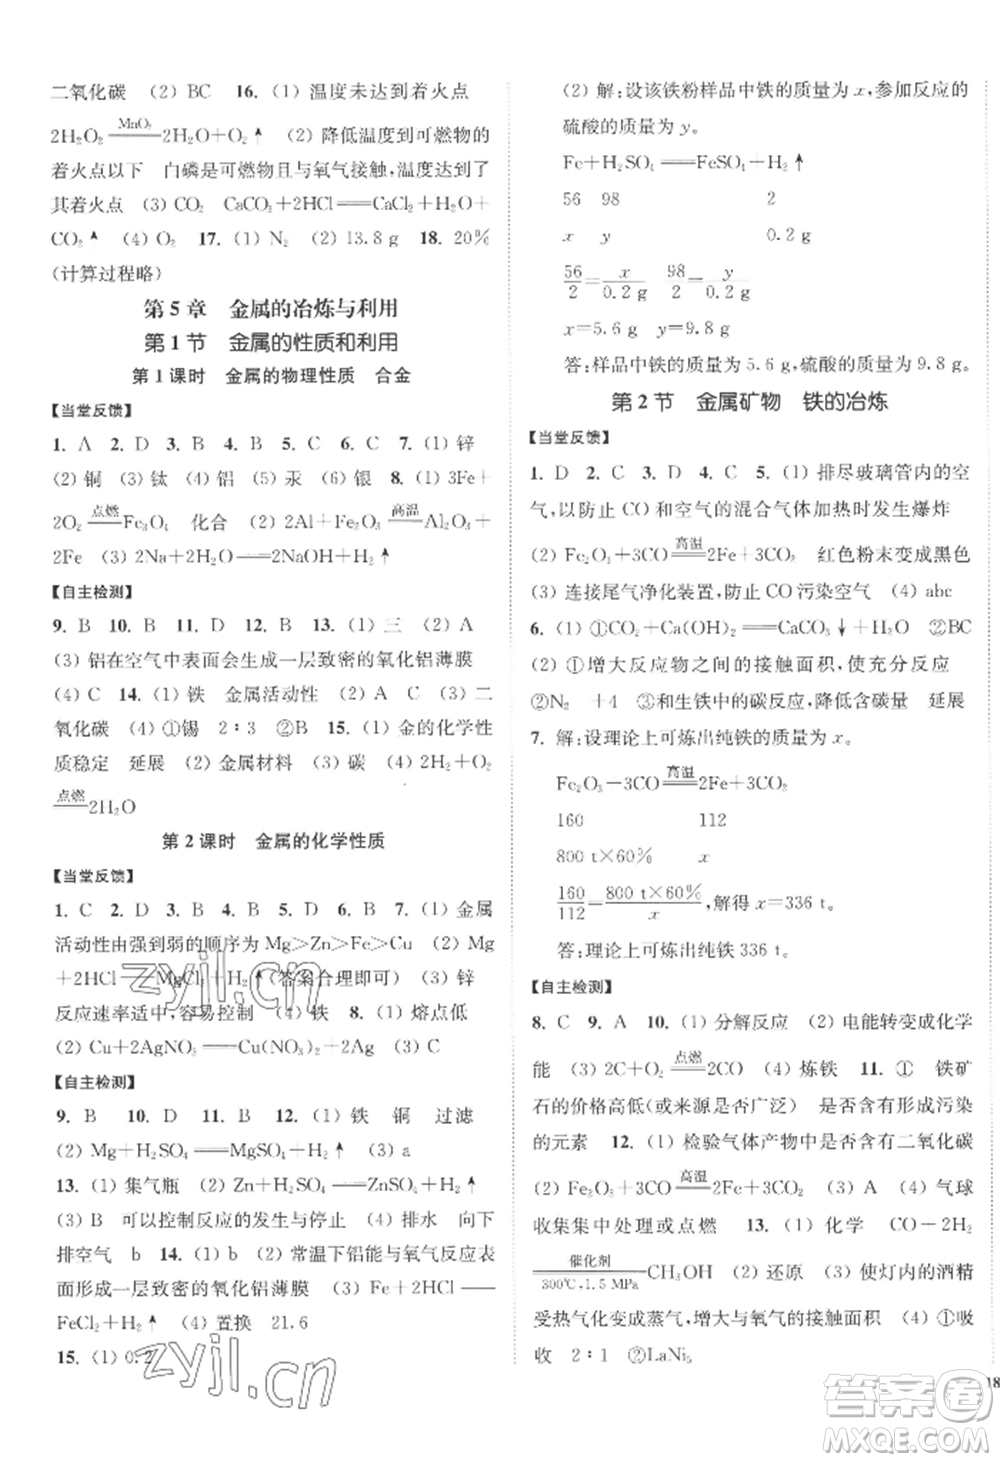 二氧化碳 (2) BC 16. (1) 温度未达到着火点
2H₂O₂ =MnO₂= 2H₂O+O₂↑ (2) 降低温度到可燃物的
着火点以下 白磷是可燃物且与氧气接触,温度达到了
其着火点 (3) CO₂ CaCO₃+2HCl══CaCl₂+H₂O+
CO₂↑ (4) O₂ 17. (1) N₂ (2) 13.8 g 18. 20%
(计算过程略)
第 5 章 金属的冶炼与利用
第 1 节 金属的性质和利用
第 1 课时 金属的物理性质 合金
【当堂反馈】
1. A 2. D 3. B 4. B 5. B 6. B 7. (1) 锌
(2) 铜 (3) 钛 (4) 铝 (5) 汞 (6) 银 8. (1) 3Fe+
2O₂ =点燃= Fe₃O₄ 化合 (2) 2Al+Fe₂O₃ =高温= Al₂O₃
+2Fe (3) 2Na+2H₂O══2NaOH+H₂↑
【自主检测】
9. B 10. B 11. D 12. B 13. (1) 三 (2) A
(3) 铝在空气中表面会生成一层致密的氧化铝薄膜
(4) C 14. (1) 铁 金属活动性 (2) B (3) 二
氧化碳 (4) ①锡 2∶3 ②B 15. (1) 金的化学性
质稳定 延展 (2) 金属材料 (3) 碳 (4) 2H₂+O₂
=点燃= 2H₂O
第 2 课时 金属的化学性质
【当堂反馈】
1. C 2. D 3. A 4. B 5. C 6. B 7. (1) 金属
活动性由强到弱的顺序为 Mg>Zn>Fe>Cu (2) Mg
+2HCl══MgCl₂+H₂↑(答案合理即可) (3) 锌
反应速率适中,容易控制 (4) 铁 8. (1) 熔点低
(2) Cu+2AgNO₃══Cu(NO₃)₂+2Ag (3) C
【自主检测】
9. B 10. D 11. B 12. (1) 铁 铜 过滤
(2) Mg+H₂SO₄══MgSO₄+H₂↑ (3) a
13. (1) 集气瓶 (2) Zn+H₂SO₄══ZnSO₄+H₂↑
(3) B 可以控制反应的发生与停止 (4) 排水 向下
排空气 b 14. (1) b (2) 常温下铝能与氧气反应,表
面形成一层致密的氧化铝薄膜 (3) Fe+2HCl══
FeCl₂+H₂↑ (4) 置换 21.6
15. (1) 0.2
(2) 解:设该铁粉样品中铁的质量为 x,参加反应的
硫酸的质量为 y。
Fe+H₂SO₄══FeSO₄+H₂↑
56 98 2
x y 0.2 g
56/2=x/0.2 g 98/2=y/0.2 g
x=5.6 g y=9.8 g
答:样品中铁的质量为 5.6 g,硫酸的质量为 9.8 g。
第 2 节 金属矿物 铁的冶炼
【当堂反馈】
1. D 2. C 3. B 4. D 5. (1) 排尽玻璃管内的空
气,以防止 CO 和空气的混合气体加热时发生爆炸
(2) Fe₂O₃+3CO =高温= 2Fe+3CO₂ 红色粉末变成黑色
(3) 连接尾气净化装置,防止 CO 污染空气 (4) abc
6. (1) ①CO₂+Ca(OH)₂══CaCO₃↓+H₂O ②BC
(2) ①增大反应物之间的接触面积,使充分反应
②N₂ +4 ③和生铁中的碳反应,除碳 延展
7. 解:设理论上可炼出纯铁的质量为 x。
Fe₂O₃+3CO =高温= 2Fe+3CO₂
160 112
800 t×60% x
160/112=800 t×60%/x,解得 x=336 t。
答:理论上可炼出纯铁 336 t。
【自主检测】
8. C 9. A 10. (1) 分解反应 (2) 电能转变成化学
能 (3) 2CO+O₂ =点燃= 2CO₂ (4) 炼铁 11. ① 铁矿
石的价格高低(或来源是否广泛) 是否含有形成污染
的元素 12. (1) 检验气体产物中是否含有二氧化碳
(2) Fe₂O₃+3CO =高温= 2Fe+3CO₂ (3) A (4) 气球
收集集中处理或点燃 13. (1) 化学 CO+2H₂
=催化剂/300℃,1.5 MPa= CH₃OH (2) 还原 (3) 使灯内的酒精
受热气化变成蒸气,增大与氧气的接触面积 (4) ①吸
收 2∶1 ②LaNi₅
18
zyjl.cn
zyjl.cn
答案圈
MXQE.COM